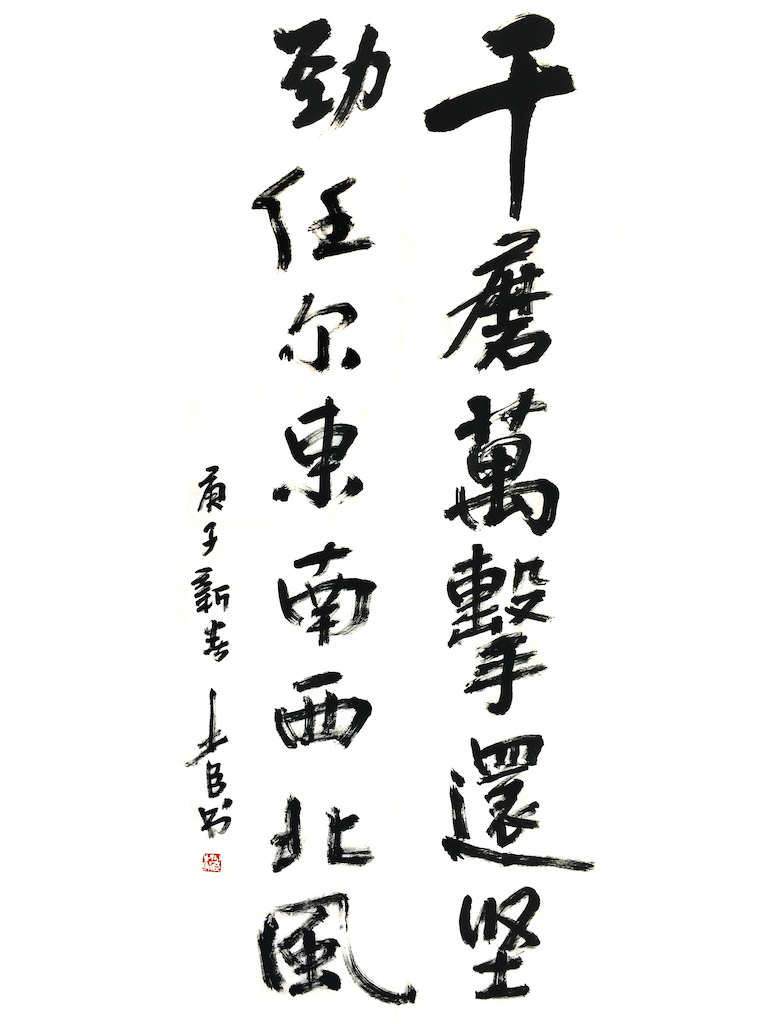 千磨萬擊還坚
劲任尔東南西北風
庚子新春 书